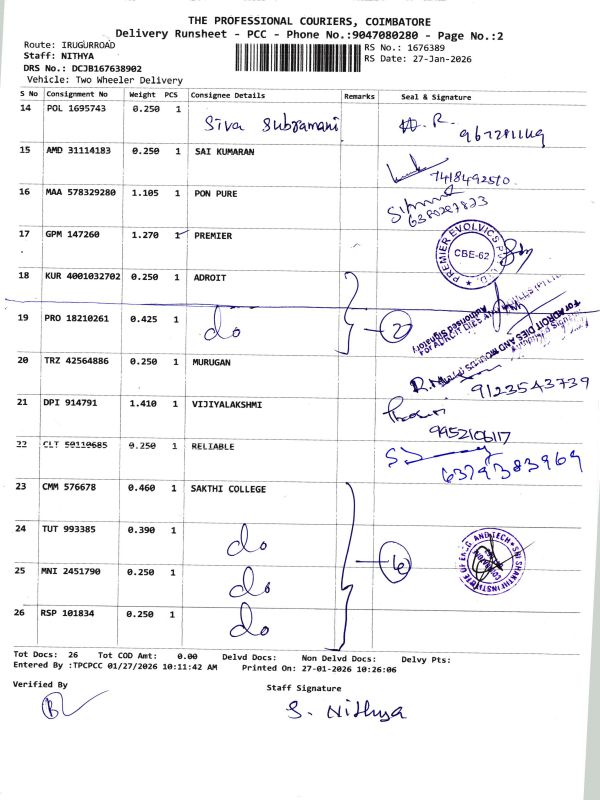 THE PROFESSIONAL COURIERS, COIMBATORE
Delivery Runsheet - PCC - Phone No.:9047080280 - Page No.:2
Route: IRUGURROAD
RS No.: 1676389
Staff: NITHYA
RS Date: 27-Jan-2026
DRS No.: DCJB167638902
Vehicle: Two Wheeler Delivery
S No Consignment No Weight PCS Consignee Details Remarks Seal & Signature
14 POL 1695743 0.250 1 Siva Subramani
15 AMD 31114183 0.250 1 SAI KUMARAN
7418492510
16 MAA 578329280 1.105 1 PON PURE
6380287823
17 GPM 147260 1.270 1 PREMIER
PREMIER EVOLVICS PVT. LTD. CBE-62
18 KUR 4001032702 0.250 1 ADROIT
19 PRO 18210261 0.425 1 do 2
For ADROIT DIES AND MOULDS
Authorised Signatory
20 TRZ 42564886 0.250 1 MURUGAN
9123543739
21 DPI 914791 1.410 1 VIJIYALAKSHMI
9952106117
22 CLT 50110685 0.250 1 RELIABLE
6379383969
23 CMM 576678 0.460 1 SAKTHI COLLEGE
24 TUT 993385 0.390 1 do
25 MNI 2451790 0.250 1 do
26 RSP 101834 0.250 1 do
Tot Docs: 26 Tot COD Amt: 0.00 Delvd Docs: Non Delvd Docs: Delvy Pts:
Entered By :TPCPCC 01/27/2026 10:11:42 AM Printed On: 27-01-2026 10:26:06
Verified By
Staff Signature
S. Nithya